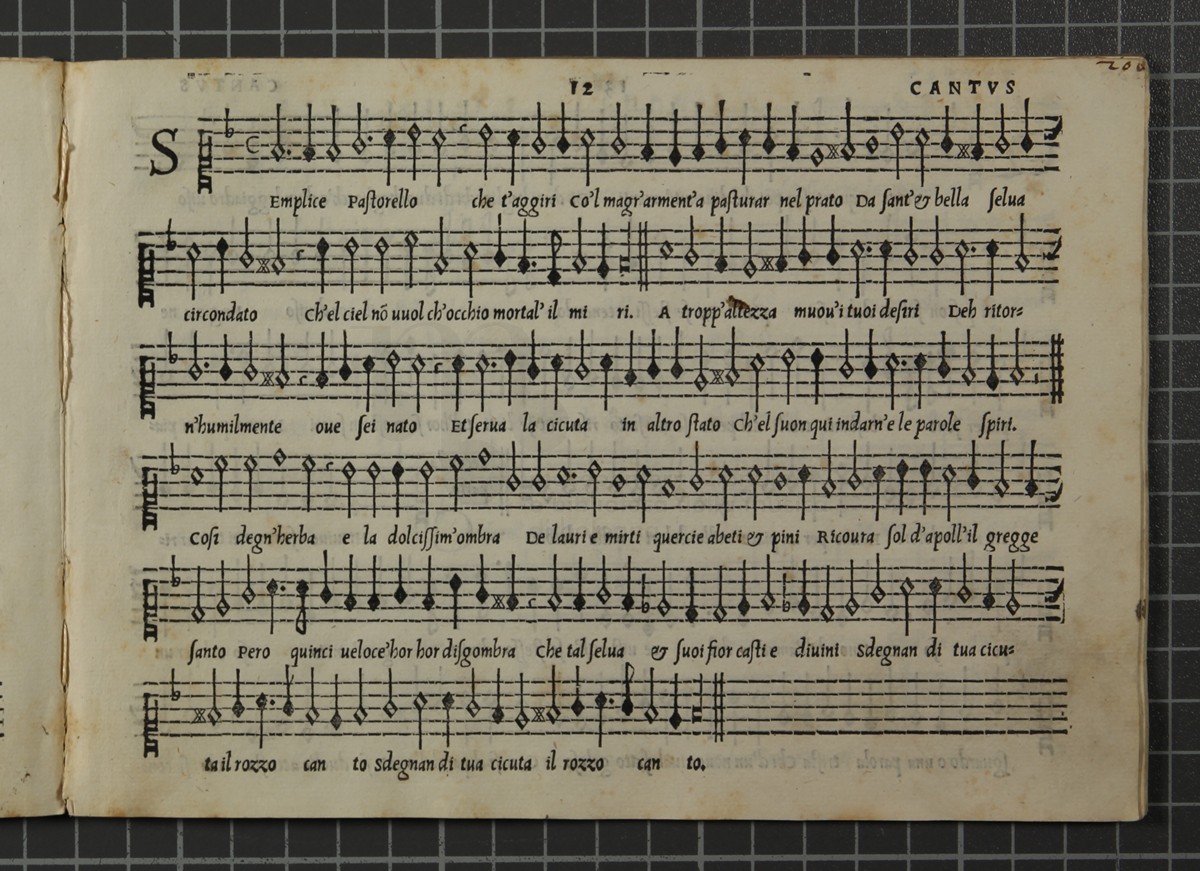 12 CANTVS
200
S
Emplice Pastorello che t'aggiri Co'l magr'arment'a pasturar nel prato Da sant'& bella selua
circondato Ch'el ciel nõ uuol ch'occhio mortal' il mi ri. A tropp'altezza muou'i tuoi desiri Deh ritor=
n'humilmente oue sei nato Et serua la cicuta in altro stato Ch'el suon qui indarn'e le parole spiri.
Cosi degn'herba e la dolcissim'ombra De lauri e mirti quercie abeti & pini Ricoura sol d'apoll'il gregge
santo Pero quinci ueloce'hor hor disgombra Che tal selua & suoi fior casti e diuini Sdegnan di tua cicu=
ta il rozzo can to Sdegnan di tua cicuta il rozzo can to.